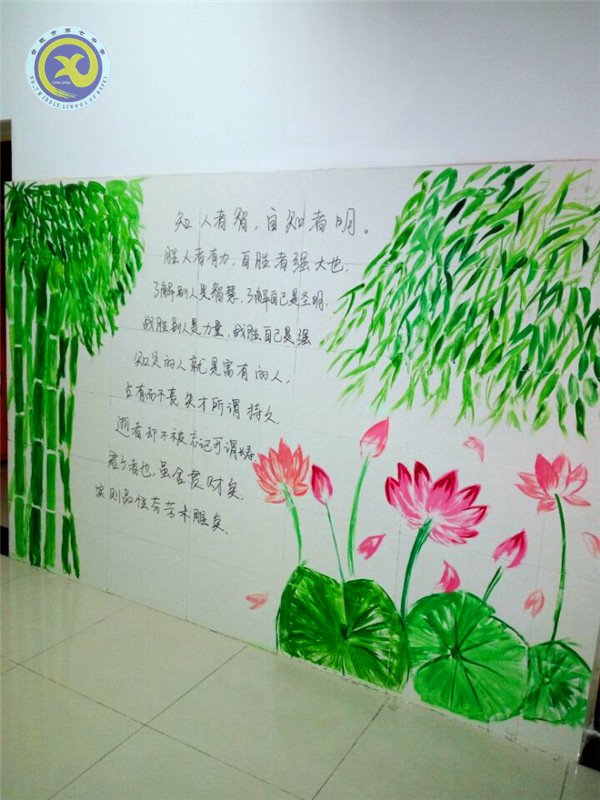 合肥市第七中学
NO.7 MIDDLE SCHOOL OF HEFEI
知人者智，自知者明。
胜人者有力，自胜者强大也.
了解别人是智慧，了解自己是圣明.
战胜别人是力量，战胜自己是强
知足的人就是富有的人，
占有而不丧失才所谓持久.
逝者却不被忘记可谓寿.
君子者也，虽舍贯财矣.
实则品性芬芳未雕矣.